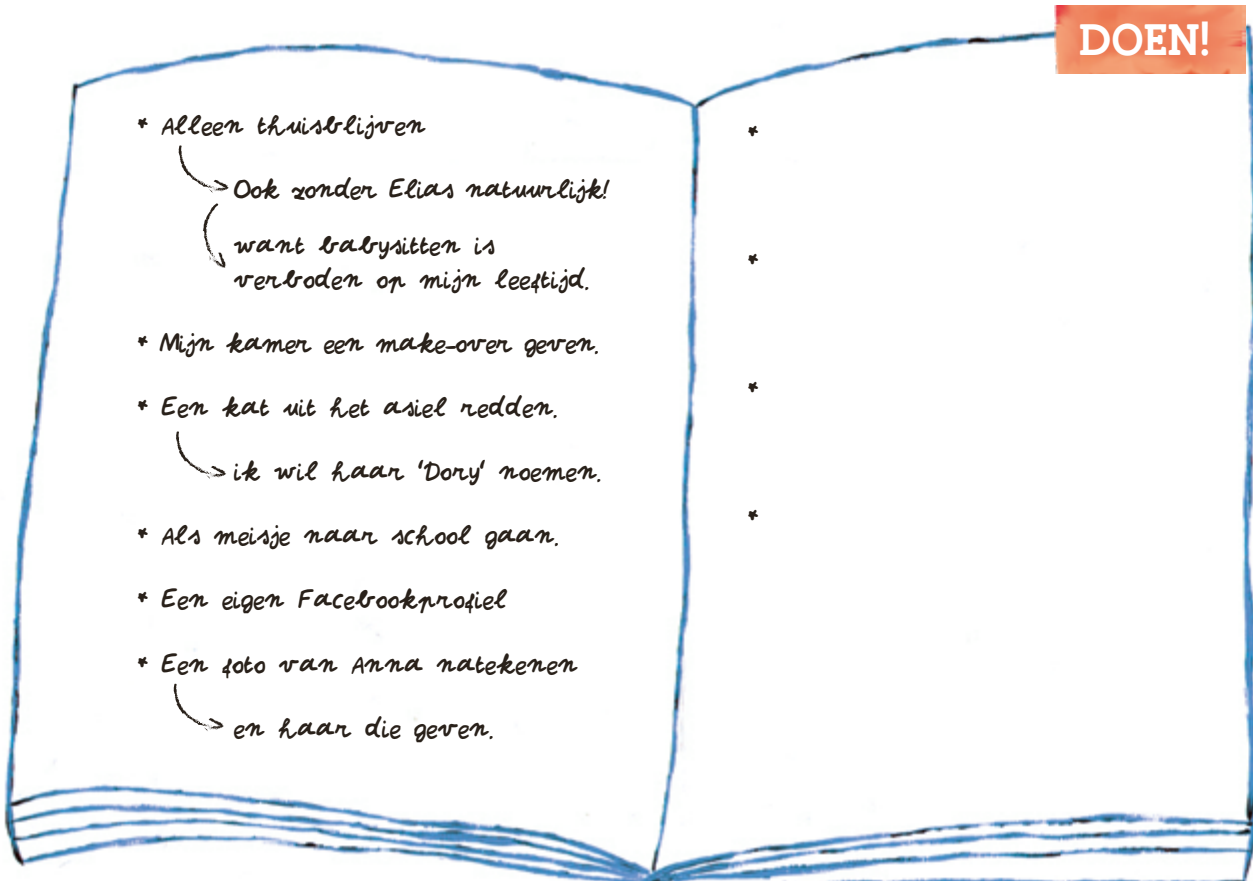 DOEN!
* Alleen thuisblijven
Ook zonder Elias natuurlijk!
want babysitten is
verboden op mijn leeftijd.
* Mijn kamer een make-over geven.
* Een kat uit het asiel redden.
ik wil haar 'Dory' noemen.
* Als meisje naar school gaan.
* Een eigen Facebookprofiel
* Een foto van Anna natekenen
en haar die geven.
*
*
*
*